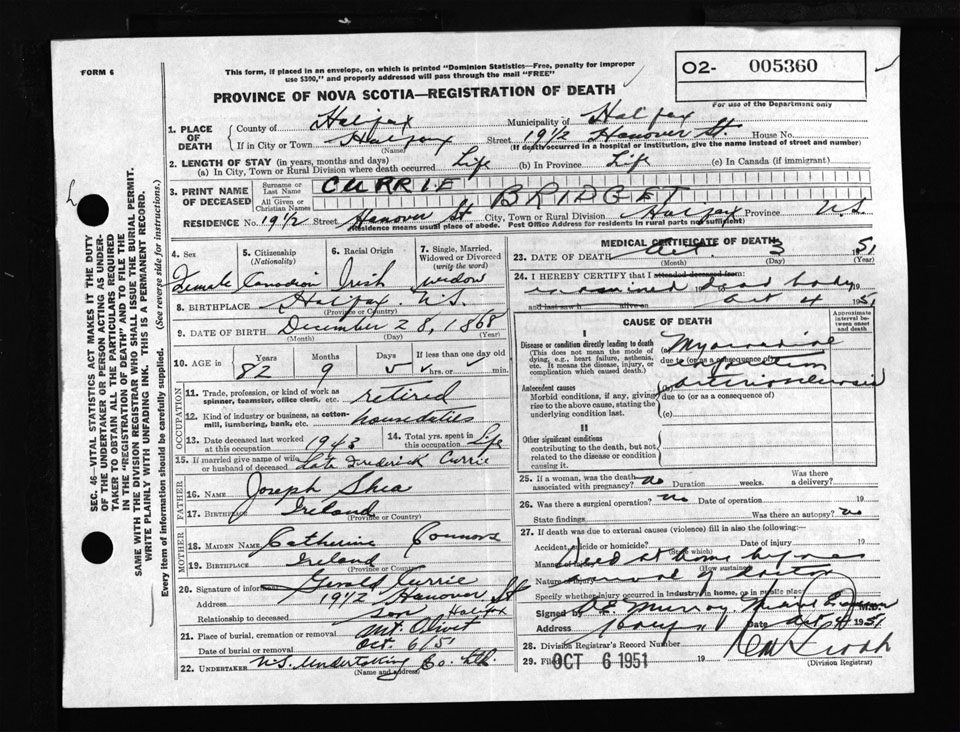 FORM 6
This form, if placed in an envelope, on which is printed "Dominion Statistics—Free, penalty for improper
use $300," and properly addressed will pass through the mail "FREE"
02- 005360
For use of the Department only
PROVINCE OF NOVA SCOTIA—REGISTRATION OF DEATH
1. PLACE OF DEATH
County of Halifax Municipality of Halifax
If in City or Town Halifax (Name) Street 19 1/2 Hanover St. House No.
(If death occurred in a hospital or institution, give the name instead of street and number)
2. LENGTH OF STAY (in years, months and days)
(a) In City, Town or Rural Division where death occurred Life (b) In Province Life (c) In Canada (if immigrant)
3. PRINT NAME OF DECEASED
Surname or Last Name CURRIE
All Given or Christian Names BRIDGET
RESIDENCE No. 19 1/2 Street Hanover St City, Town or Rural Division Halifax Province N.S.
Residence means usual place of abode. Post Office Address for residents in rural parts not sufficient.
4. Sex Female
5. Citizenship (Nationality) Canadian
6. Racial Origin Irish
7. Single, Married, Widowed or Divorced (write the word) widow
8. BIRTHPLACE Halifax N.S.
(Province or Country)
9. DATE OF BIRTH December 28, 1868
(Month) (Day) (Year)
10. AGE in Years Months Days If less than one day old
82 9 5 hrs. or min.
OCCUPATION
11. Trade, profession, or kind of work as spinner, teamster, office clerk, etc. retired
12. Kind of industry or business, as cotton-mill, lumbering, bank, etc. housduties
13. Date deceased last worked at this occupation 1943
14. Total yrs. spent in this occupation Life
15. If married give name of wife or husband of deceased Late Frederick Currie
FATHER
16. NAME Joseph Shea
17. BIRTHPLACE Ireland
(Province or Country)
MOTHER
18. MAIDEN NAME Catherine Connors
19. BIRTHPLACE Ireland
(Province or Country)
20. Signature of informant Gerald Currie
Address 19 1/2 Hanover St
Relationship to deceased son Halifax
21. Place of burial, cremation or removal Mt. Olivet
Date of burial or removal Oct. 6/51
22. UNDERTAKER N.S. Undertaking Co. Ltd.
(Name and address)
MEDICAL CERTIFICATE OF DEATH
23. DATE OF DEATH Oct. 3 1951
(Month) (Day) (Year)
24. I HEREBY CERTIFY that I attended deceased from:
examined dead body
and last saw alive on Oct 4 1951
CAUSE OF DEATH
Approximate interval between onset and death
I
Disease or condition directly leading to death
(This does not mean the mode of dying, e.g., heart failure, asthenia, etc. It means the disease, injury, or complication which caused death.)
(a) Myocardial
due to (or as a consequence of)
Antecedent causes
Morbid conditions, if any, giving rise to the above cause, stating the underlying condition last.
(b)
due to (or as a consequence of)
(c)
II
Other significant conditions
contributing to the death, but not related to the disease or condition causing it.
25. If a woman, was the death associated with pregnancy? no Duration weeks. Was there a delivery?
26. Was there a surgical operation? no Date of operation 19
State findings Was there an autopsy? no
27. If death was due to external causes (violence) fill in also the following:—
Accident, suicide or homicide? Date of injury 19
(State which)
Manner of injury Died at home
(How sustained)
Nature of injury arrival of doctor
Specify whether injury occurred in industry, in home, or in public place
Signed by Murray
Address Date Oct 4 1951
28. Division Registrar's Record Number
29. Filed OCT 6 1951 19
(Division Registrar)
SEC. 46—VITAL STATISTICS ACT MAKES IT THE DUTY
OF THE UNDERTAKER OR PERSON ACTING AS UNDER-
TAKER TO OBTAIN ALL THE PARTICULARS REQUIRED
IN THE "REGISTRATION OF DEATH" AND TO FILE THE
SAME WITH THE DIVISION REGISTRAR WHO SHALL ISSUE THE BURIAL PERMIT.
WRITE PLAINLY WITH UNFADING INK. THIS IS A PERMANENT RECORD.
Every item of information should be carefully supplied. (See reverse side for instructions.)